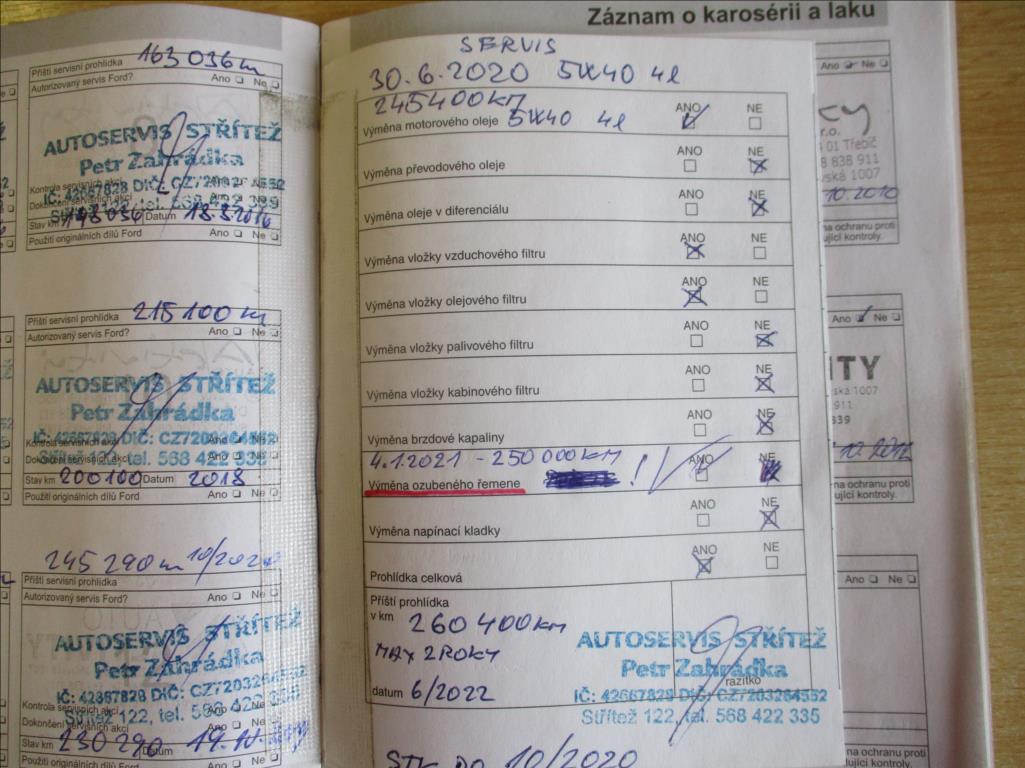 Příští servisní prohlídka 163 036 km
Autorizovaný servis Ford? Ano Ne
AUTOSERVIS STŘÍTEŽ
Petr Zahrádka
Kontrola servisních akcí
Dokončení servisních akcí
Střítež 122, tel. 568 422 339
Stav km Datum
Použití originálních dílů Ford Ano Ne
Příští servisní prohlídka 215 100 km
Autorizovaný servis Ford? Ano Ne
AUTOSERVIS STŘÍTEŽ
Petr Zahrádka
IČ: 42667828 DIČ: CZ7203264552
Kontrola servisních akcí Ano Ne
Dokončení servisních akcí Ano Ne
Střítež 122, tel. 568 422 335
Stav km 200 100 Datum 2018
Použití originálních dílů Ford Ano Ne
245 290 km
Příští servisní prohlídka
Autorizovaný servis Ford? Ano Ne
AUTOSERVIS STŘÍTEŽ
Petr Zahrádka
IČ: 42667828 DIČ: CZ7203264552
Kontrola servisních akcí
Střítež 122, tel.
Dokončení servisních akcí Ano
Stav km 230 290 Datum
Použití originálních dílů Ford Ano Ne
Záznam o karosérii a laku
SERVIS
30.6.2020 5W40 4l
245400 km
ANO NE
Výměna motorového oleje 5W40 4l
ANO NE
Výměna převodového oleje
ANO NE
Výměna oleje v diferenciálu
ANO NE
Výměna vložky vzduchového filtru
ANO NE
Výměna vložky olejového filtru
ANO NE
Výměna vložky palivového filtru
ANO NE
Výměna vložky kabinového filtru
ANO NE
Výměna brzdové kapaliny
4.1.2021 - 250 000 km
ANO NE
Výměna ozubeného řemene !
ANO NE
Výměna napínací kladky
ANO NE
Prohlídka celková
Příští prohlídka
v km 260 400 km
MAX 2 ROKY
datum 6/2022
AUTOSERVIS STŘÍTEŽ
Petr Zahrádka
razítko
IČ: 42667828 DIČ: CZ7203264552
Střítež 122, tel. 568 422 335
STK DO 10/2020
Ano Ne
01 Třebíč
838 911
1007
10.2010
na ochranu proti
ující kontroly.
Ano Ne
ITY
ská 1007
911
339
10.2012
na ochranu proti
ující kontroly.
Ano Ne
na ochranu proti
ující kontroly.